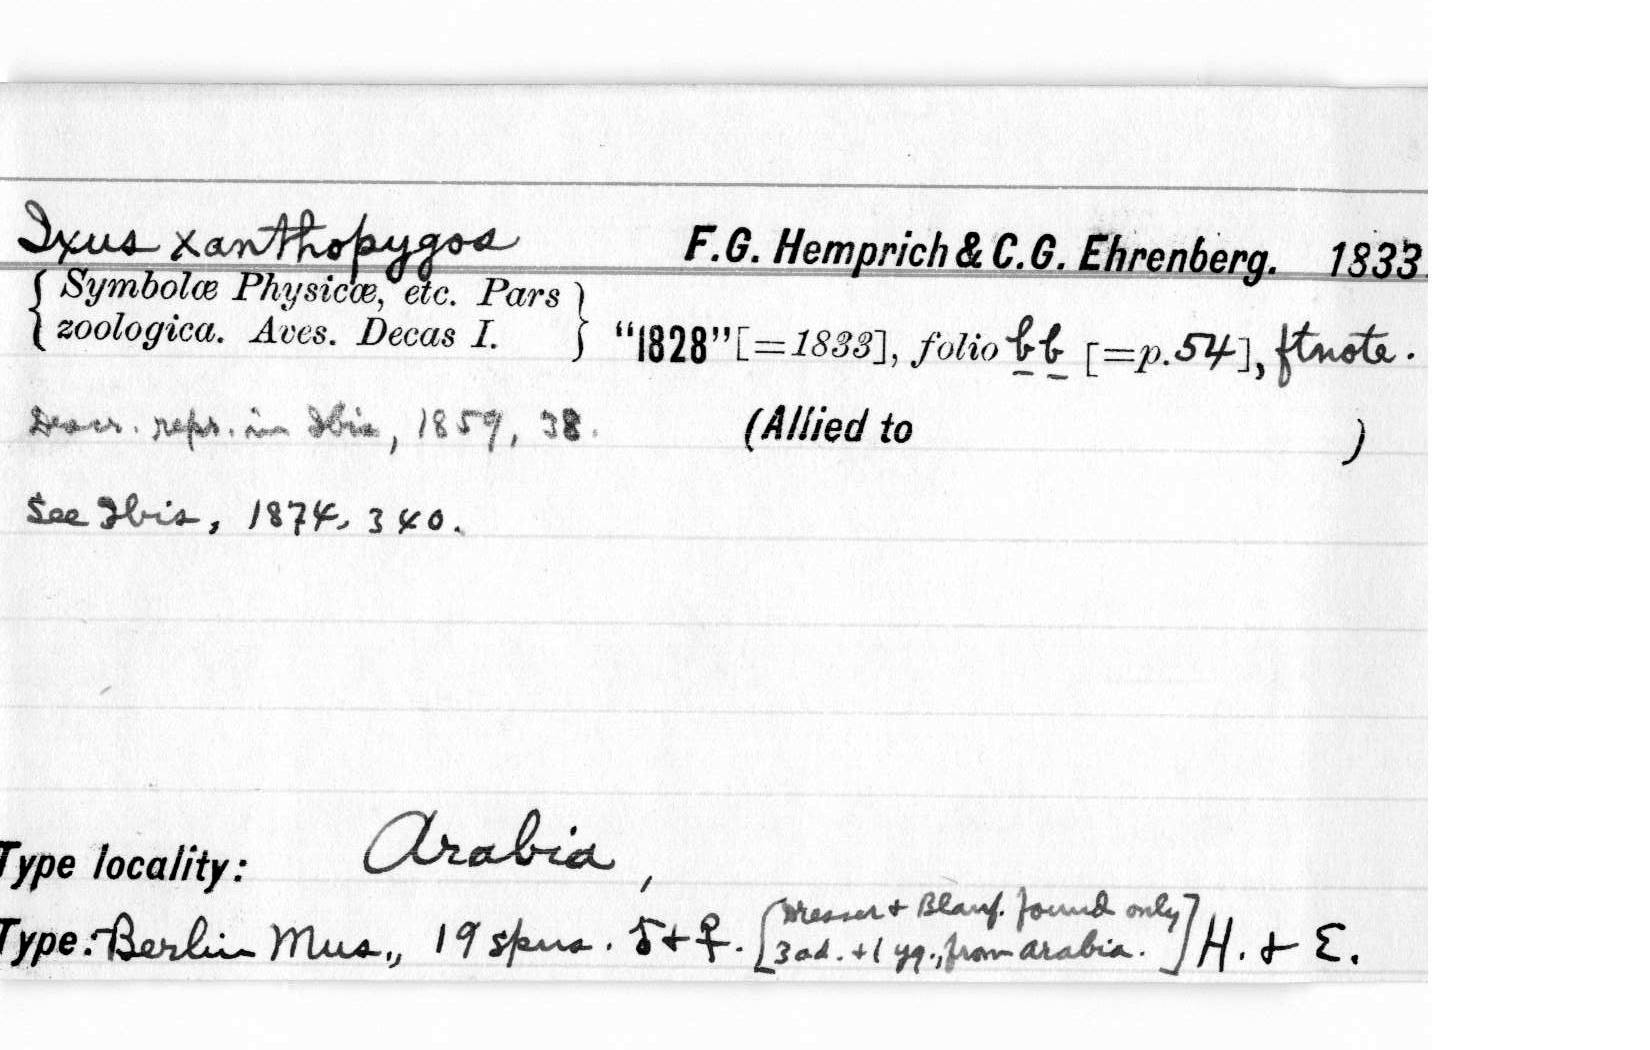 Ixus xanthopygos F.G. Hemprich & C.G. Ehrenberg. 1833
{ Symbolæ Physicæ, etc. Pars
zoologica. Aves. Decas I. } "1828" [=1833], folio bb [=p.54], ftnote.
Descr. repr. in Ibis, 1859, 38. (Allied to )
See Ibis, 1874, 340.
Type locality: Arabia,
Type: Berlin Mus., 19 spns. ♂ + ♀. [Dresser + Blanf. found only
3 ad. + 1 yg., from Arabia.] H. + E.